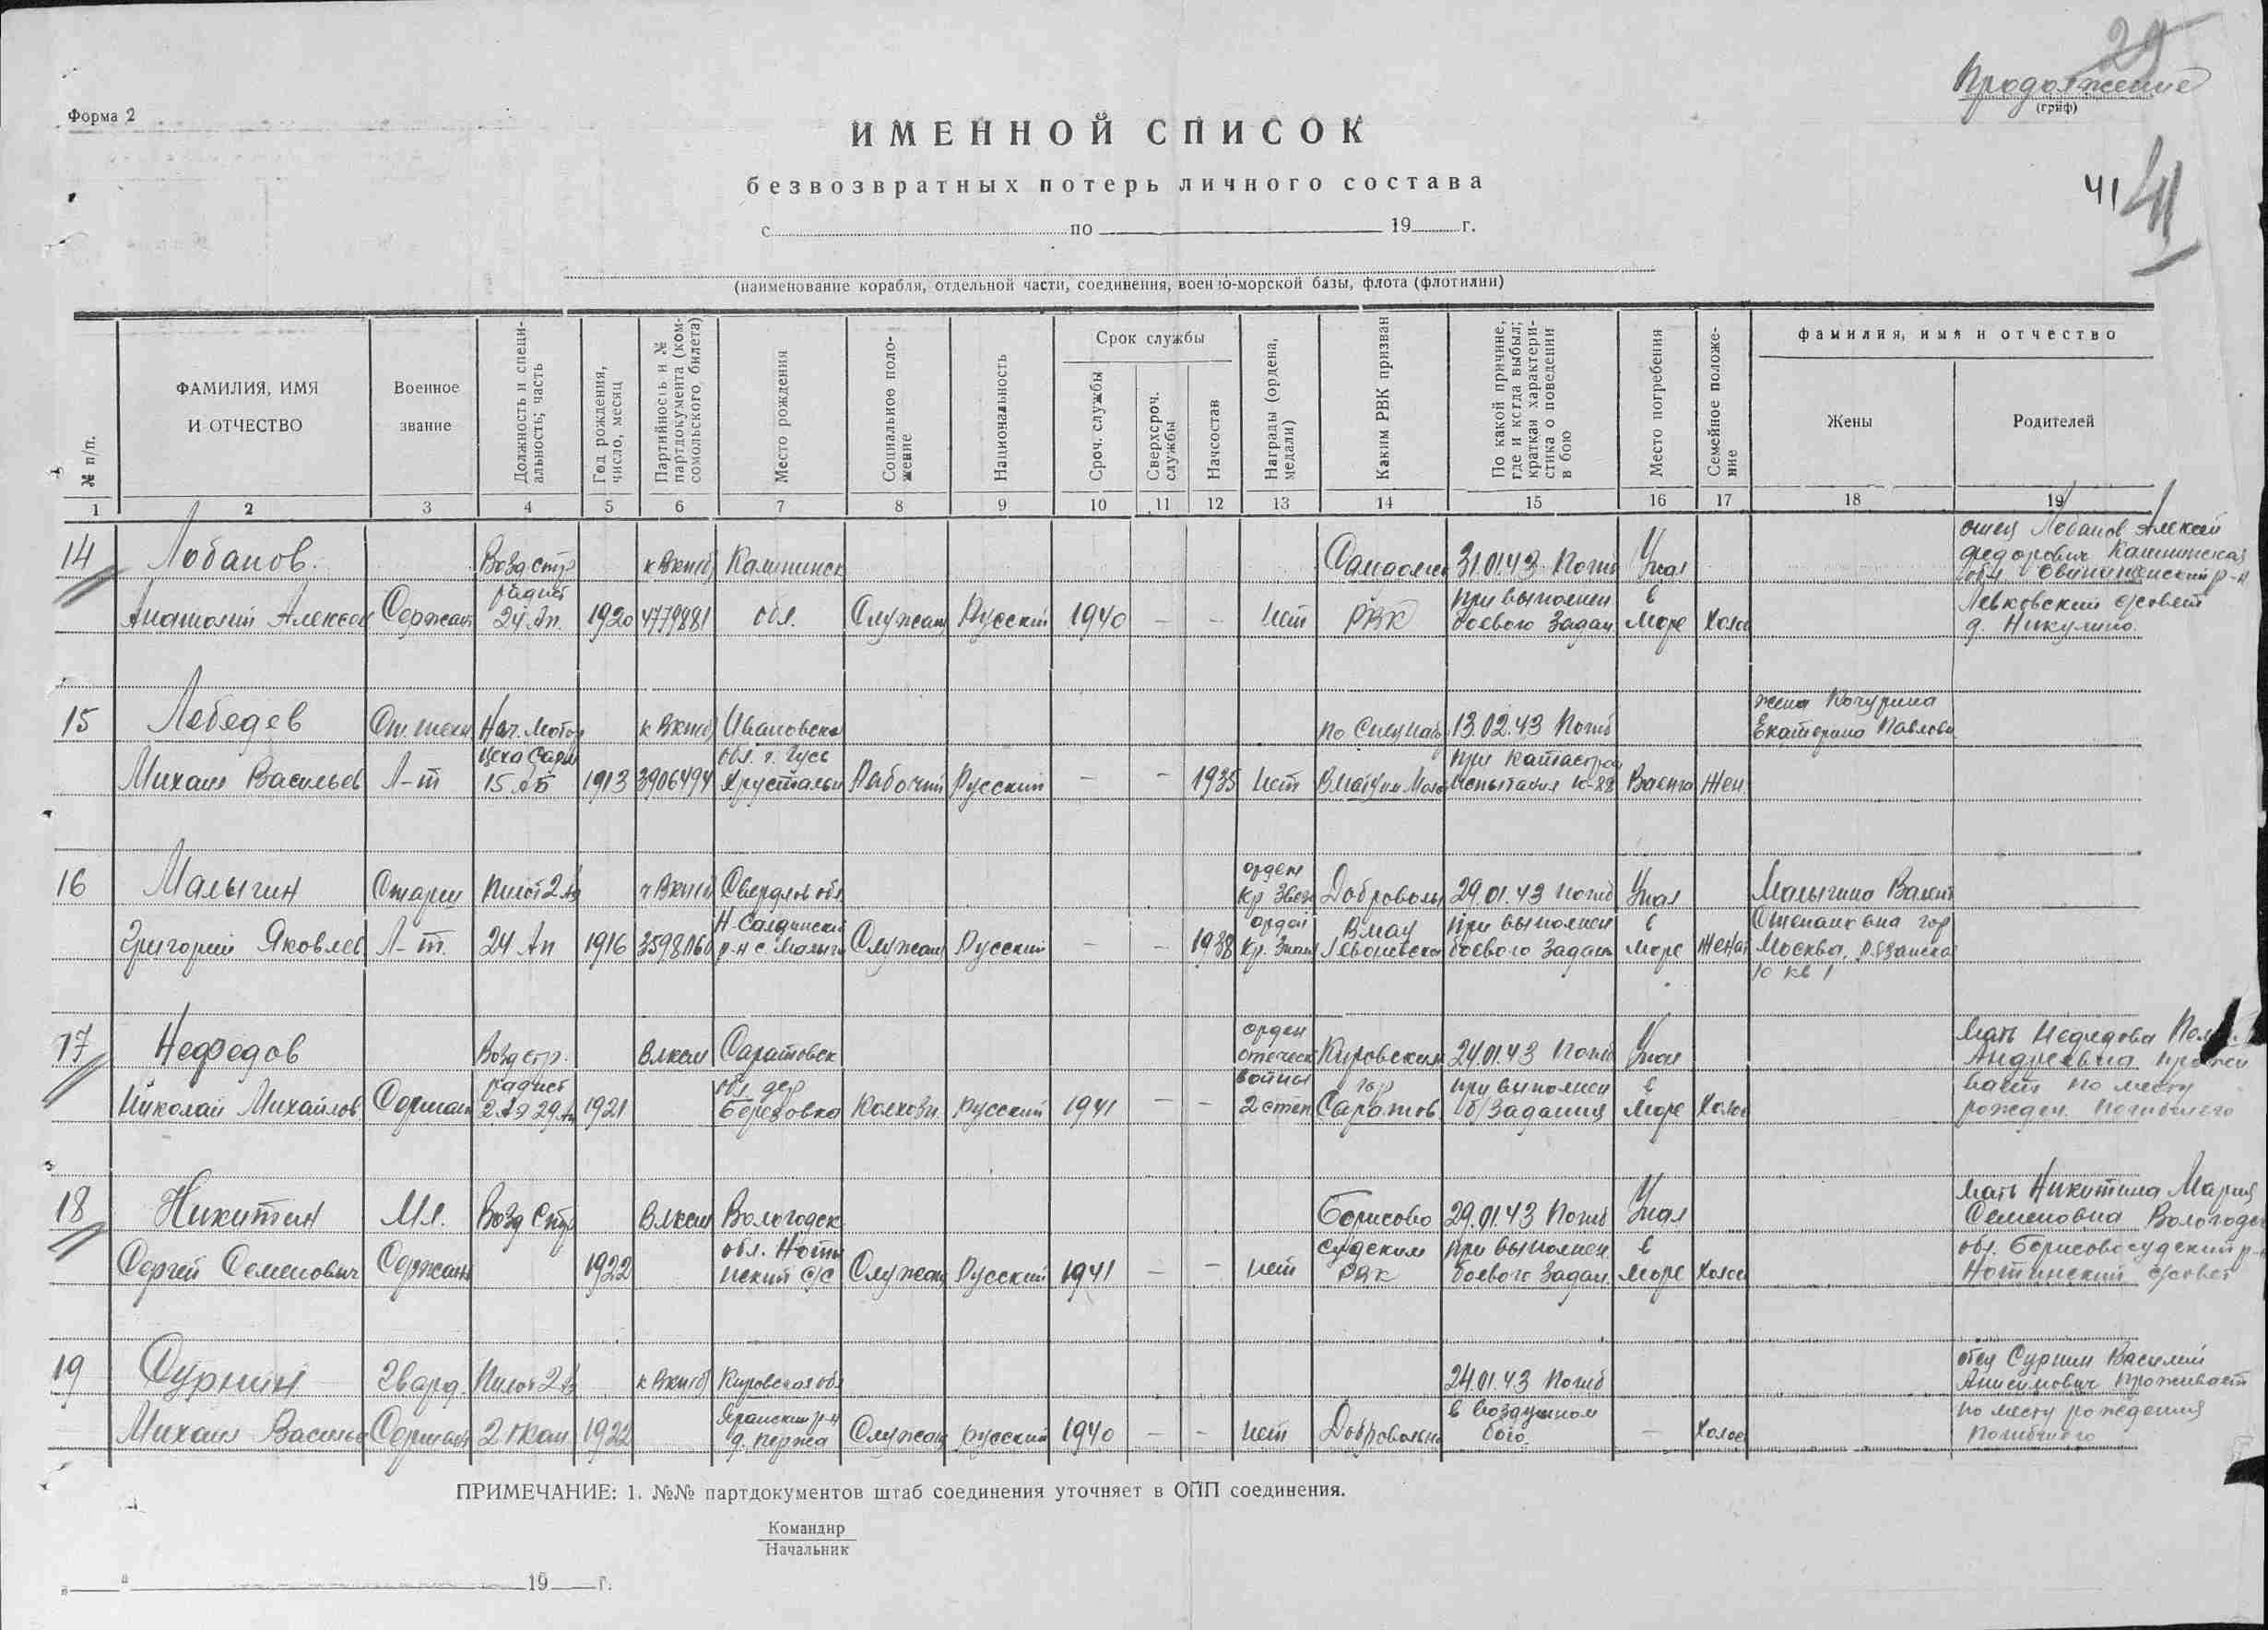 29
Продолжение
(гриф)
Форма 2
ИМЕННОЙ СПИСОК
безвозвратных потерь личного состава
41 41
с по 19 г.
(наименование корабля, отдельной части, соединения, военно-морской базы, флота (флотилии)
№ п/п.
ФАМИЛИЯ, ИМЯ И ОТЧЕСТВО
Военное звание
Должность и специальность; часть
Год рождения, число, месяц
Партийность и № партдокумента (комсомольского билета)
Место рождения
Социальное положение
Национальность
Срок службы
Сроч. службы
Сверхсроч. службы
Начсостав
Награды (ордена, медали)
Каким РВК призван
По какой причине, где и когда выбыл; краткая характеристика о поведении в бою
Место погребения
Семейное положение
фамилия, имя и отчество
Жены
Родителей
1 2 3 4 5 6 7 8 9 10 11 12 13 14 15 16 17 18 19
14 Лобанов Возд стр кВкпб Калининск 31.01.43 Погиб Упал отец Лобанов Алексей
радист при выполнен в Федорович Калининская
обл. Овинищенский р-н
Анатолий Алексеев Сержант 24 Ап. 1920 4779881 обл. Служащ Русский 1940 — — нет РВК боевого задан. море Холос Левковский с/совет
д. Никулино.
15 Лебедев Ст. техн Нач. Мотор кВкпб Ивановская по Спецнаб 13.02.43 Погиб жена Кочурина
Екатерина Павловн
обл. г. Гусь при катастроф
Михаил Васильев Л-т 15 АБ 1913 3906494 Хрустальн Рабочий Русский — — 1935 нет испытания Ю-88 Ваенга Жен.
16 Малыгин Старш Пилот 2 Аэ чВкпб Свердлов обл. орден Кр Звез Доброволь 29.01.43 погиб Упал Малыгина Валент
Н-Салдинский орден Вмау при выполнен в Степановна гор
Григорий Яковлев Л-т. 24 Ап 1916 3598060 р-н с. Малыги Служащ Русский — — 1938 Кр. Знам Леваневска боевого задан море Женат Москва,
10 кв 1
17 Нефедов Возд стр. Влксм Саратовск орден отечеств Кировским 24.01.43 Погиб Упал мать Нефедова
Андреевна прожи
радист обл. дер войны гор при выполнен в вает по месту
Николай Михайлов Сержант 2 Аэ 29 Ап 1921 Березовка колхозн. русский 1941 — — 2 степ Саратов. б/задания море Холос рожден. погибшего
18 Никитин Мл. Возд Стр Влксм Вологодск Борисово 29.01.43 Погиб Упал мать Никитина Мария
Семеновна Вологодск
обл. судским при выполнен. в обл. Борисовосудский р-н
Сергей Семенович Сержант 1922 с/с Служащ Русский 1941 — — нет РВК боевого задан. море Холос с/совет
19 Сурнин Гвард. Пилот 2 Аэ кВкпб Кировская обл 24.01.43 Погиб отец Сурнин Василий
Анисимович проживает
Яранский р-н в воздушном по месту рождения
Михаил Василье Сержант 2 гкап 1922 Служащ русский 1940 — — нет Добровольно бою. — Холос погибшего
ПРИМЕЧАНИЕ: 1. №№ партдокументов штаб соединения уточняет в ОПП соединения.
Командир
Начальник
„ “ 19 г.